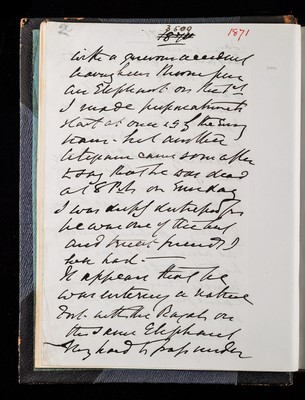 2
3500
1871
1871
with a serious accident
having been thrown from
an Elephant on the 1st
I made preparations to
start at once by the Evng
train - but another
telegram came soon after
to say that he was dead
at 8 P.M. on Sunday
I was deeply distressed for
he was one of the best
and truest friends I
ever had. —
It appears that he
was entering a native
Fort with the Rajah on
the same Elephant
They had to pass under